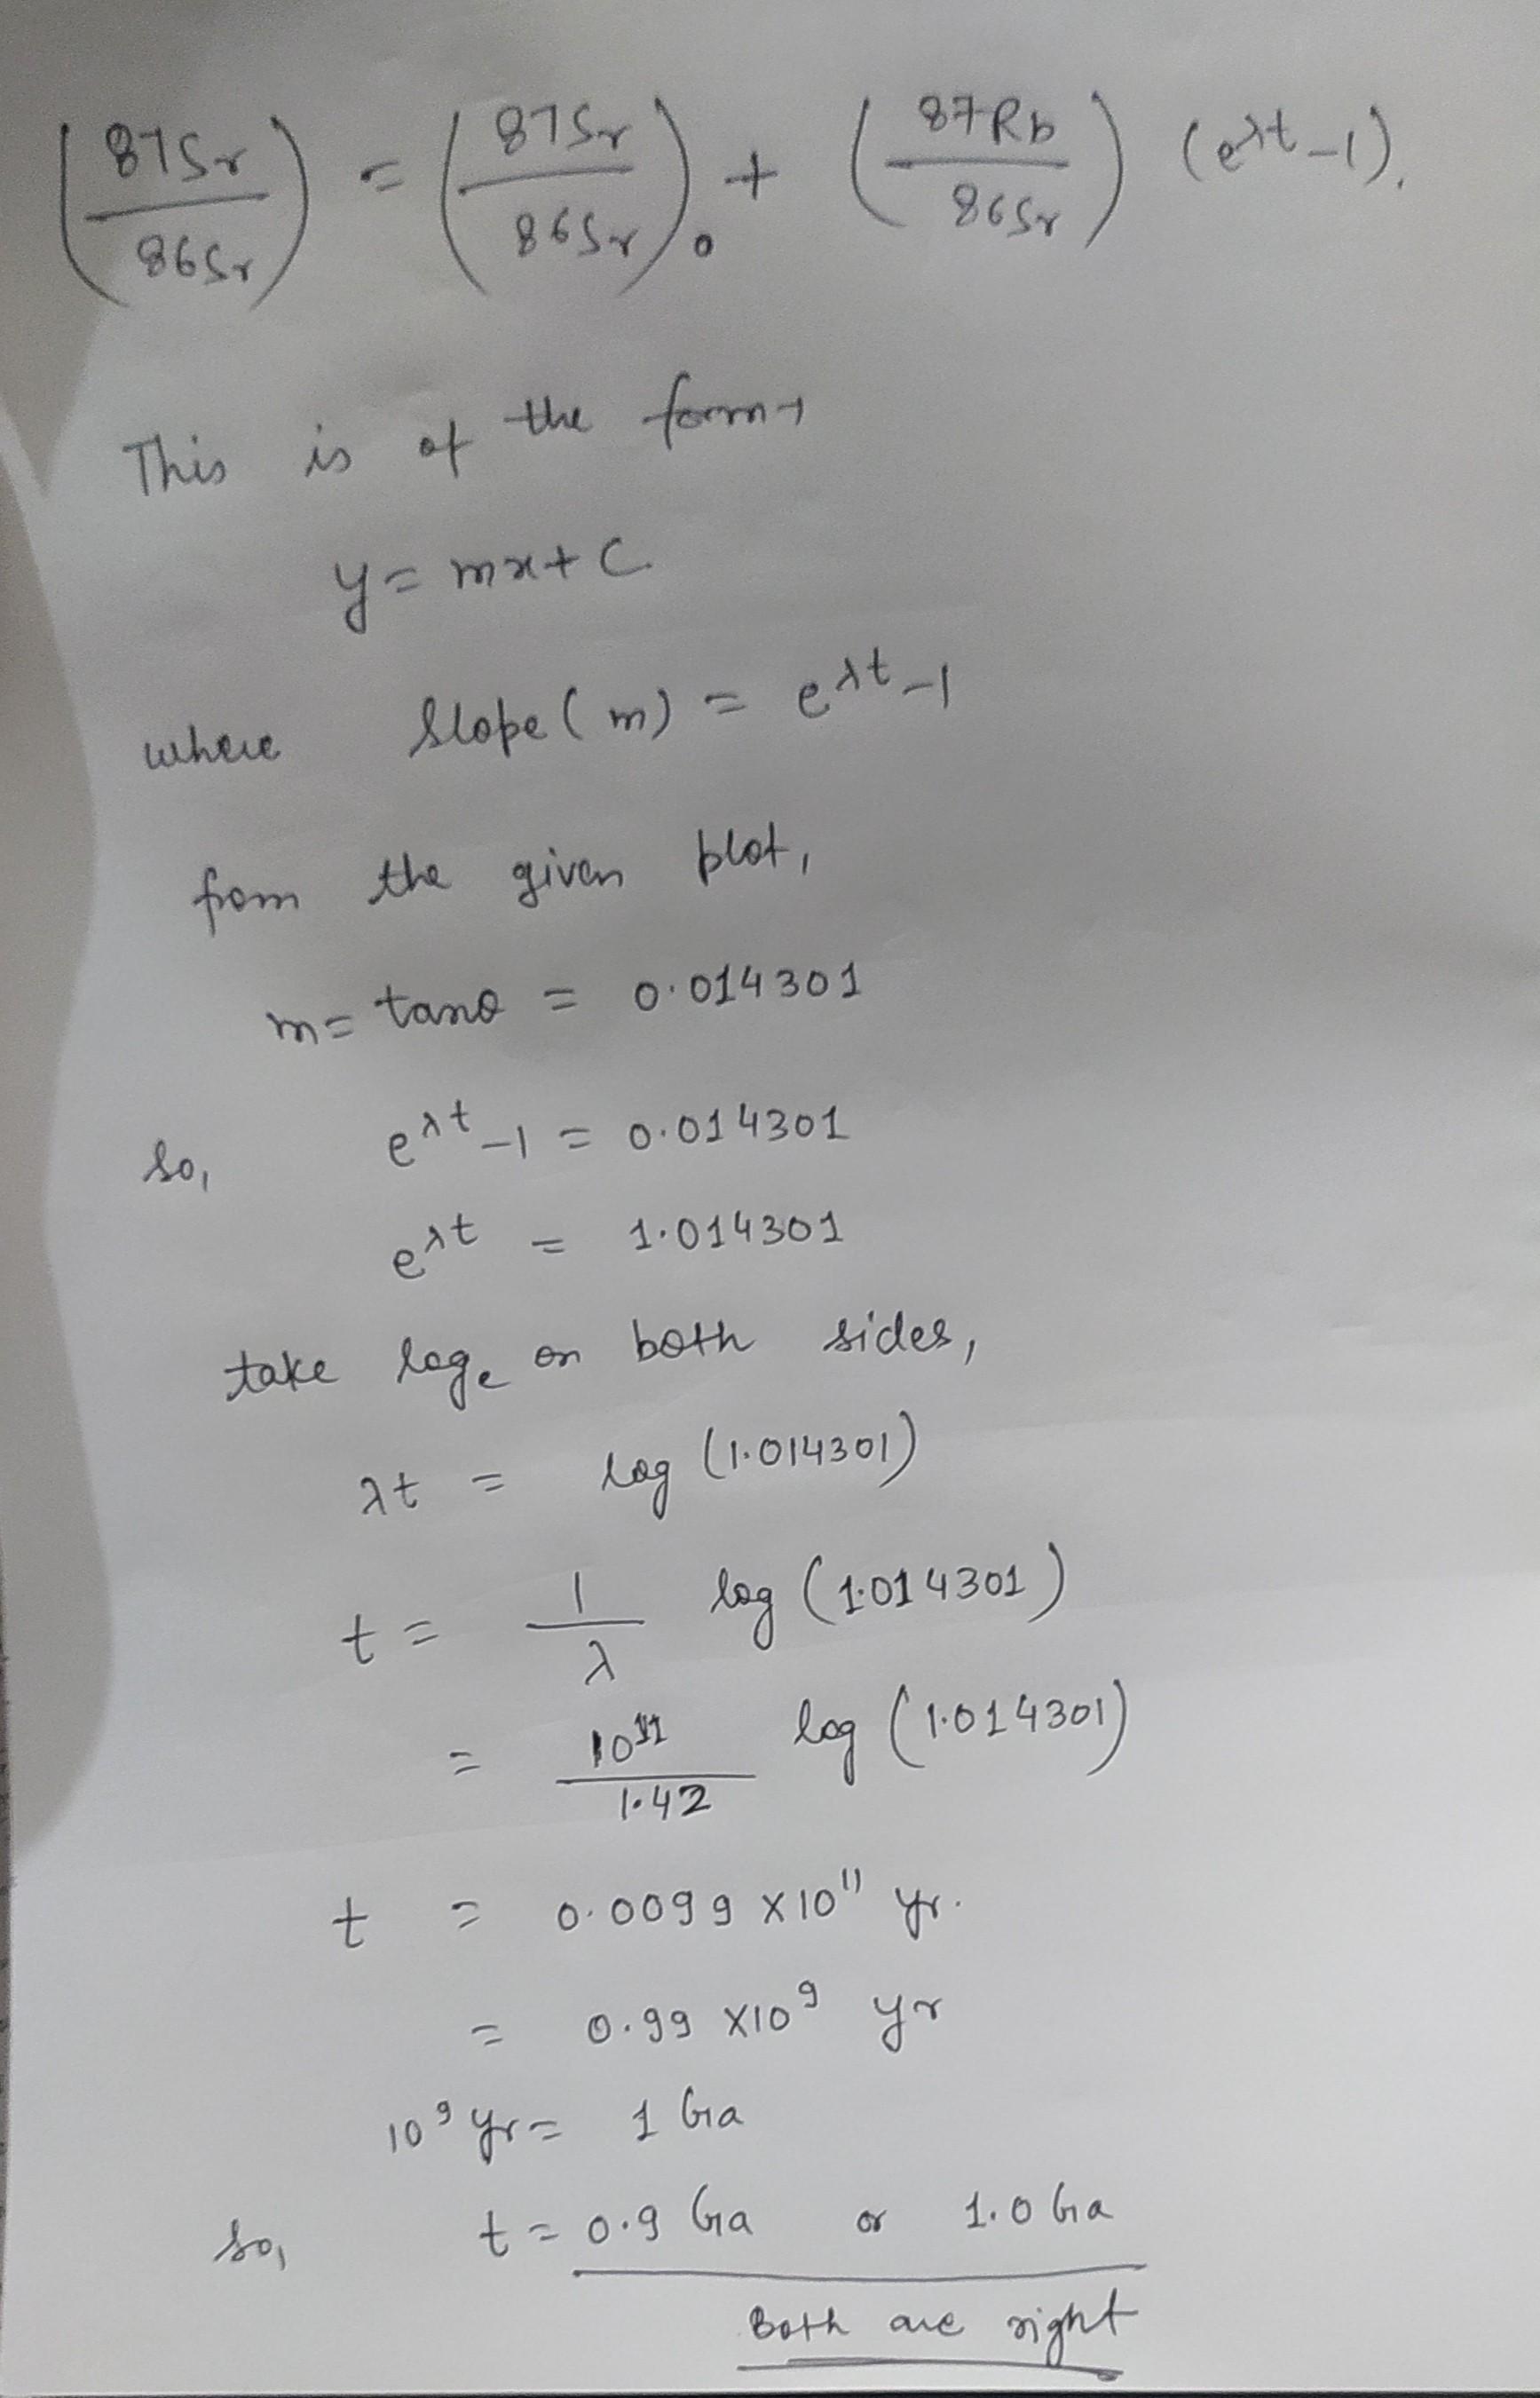 (87Sr/86Sr) = (87Sr/86Sr)₀ + (87Rb/86Sr) (e^λt − 1).
This is of the form→
y = mx + C
where slope (m) = e^λt − 1
from the given plot,
m = tanθ = 0.014301
so, e^λt − 1 = 0.014301
e^λt = 1.014301
take logₑ on both sides,
λt = log (1.014301)
t = 1/λ log (1.014301)
= 10^11/1.42 log (1.014301)
t = 0.0099 × 10^11 yr.
= 0.99 × 10^9 yr
10^9 yr = 1 Ga
so, t = 0.9 Ga or 1.0 Ga
Both are right